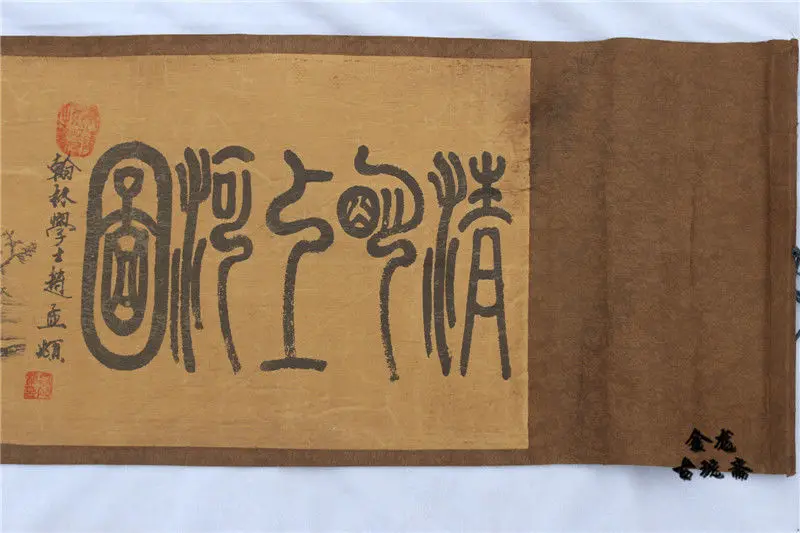 清明上河圖
翰林學士趙孟頫
金龙